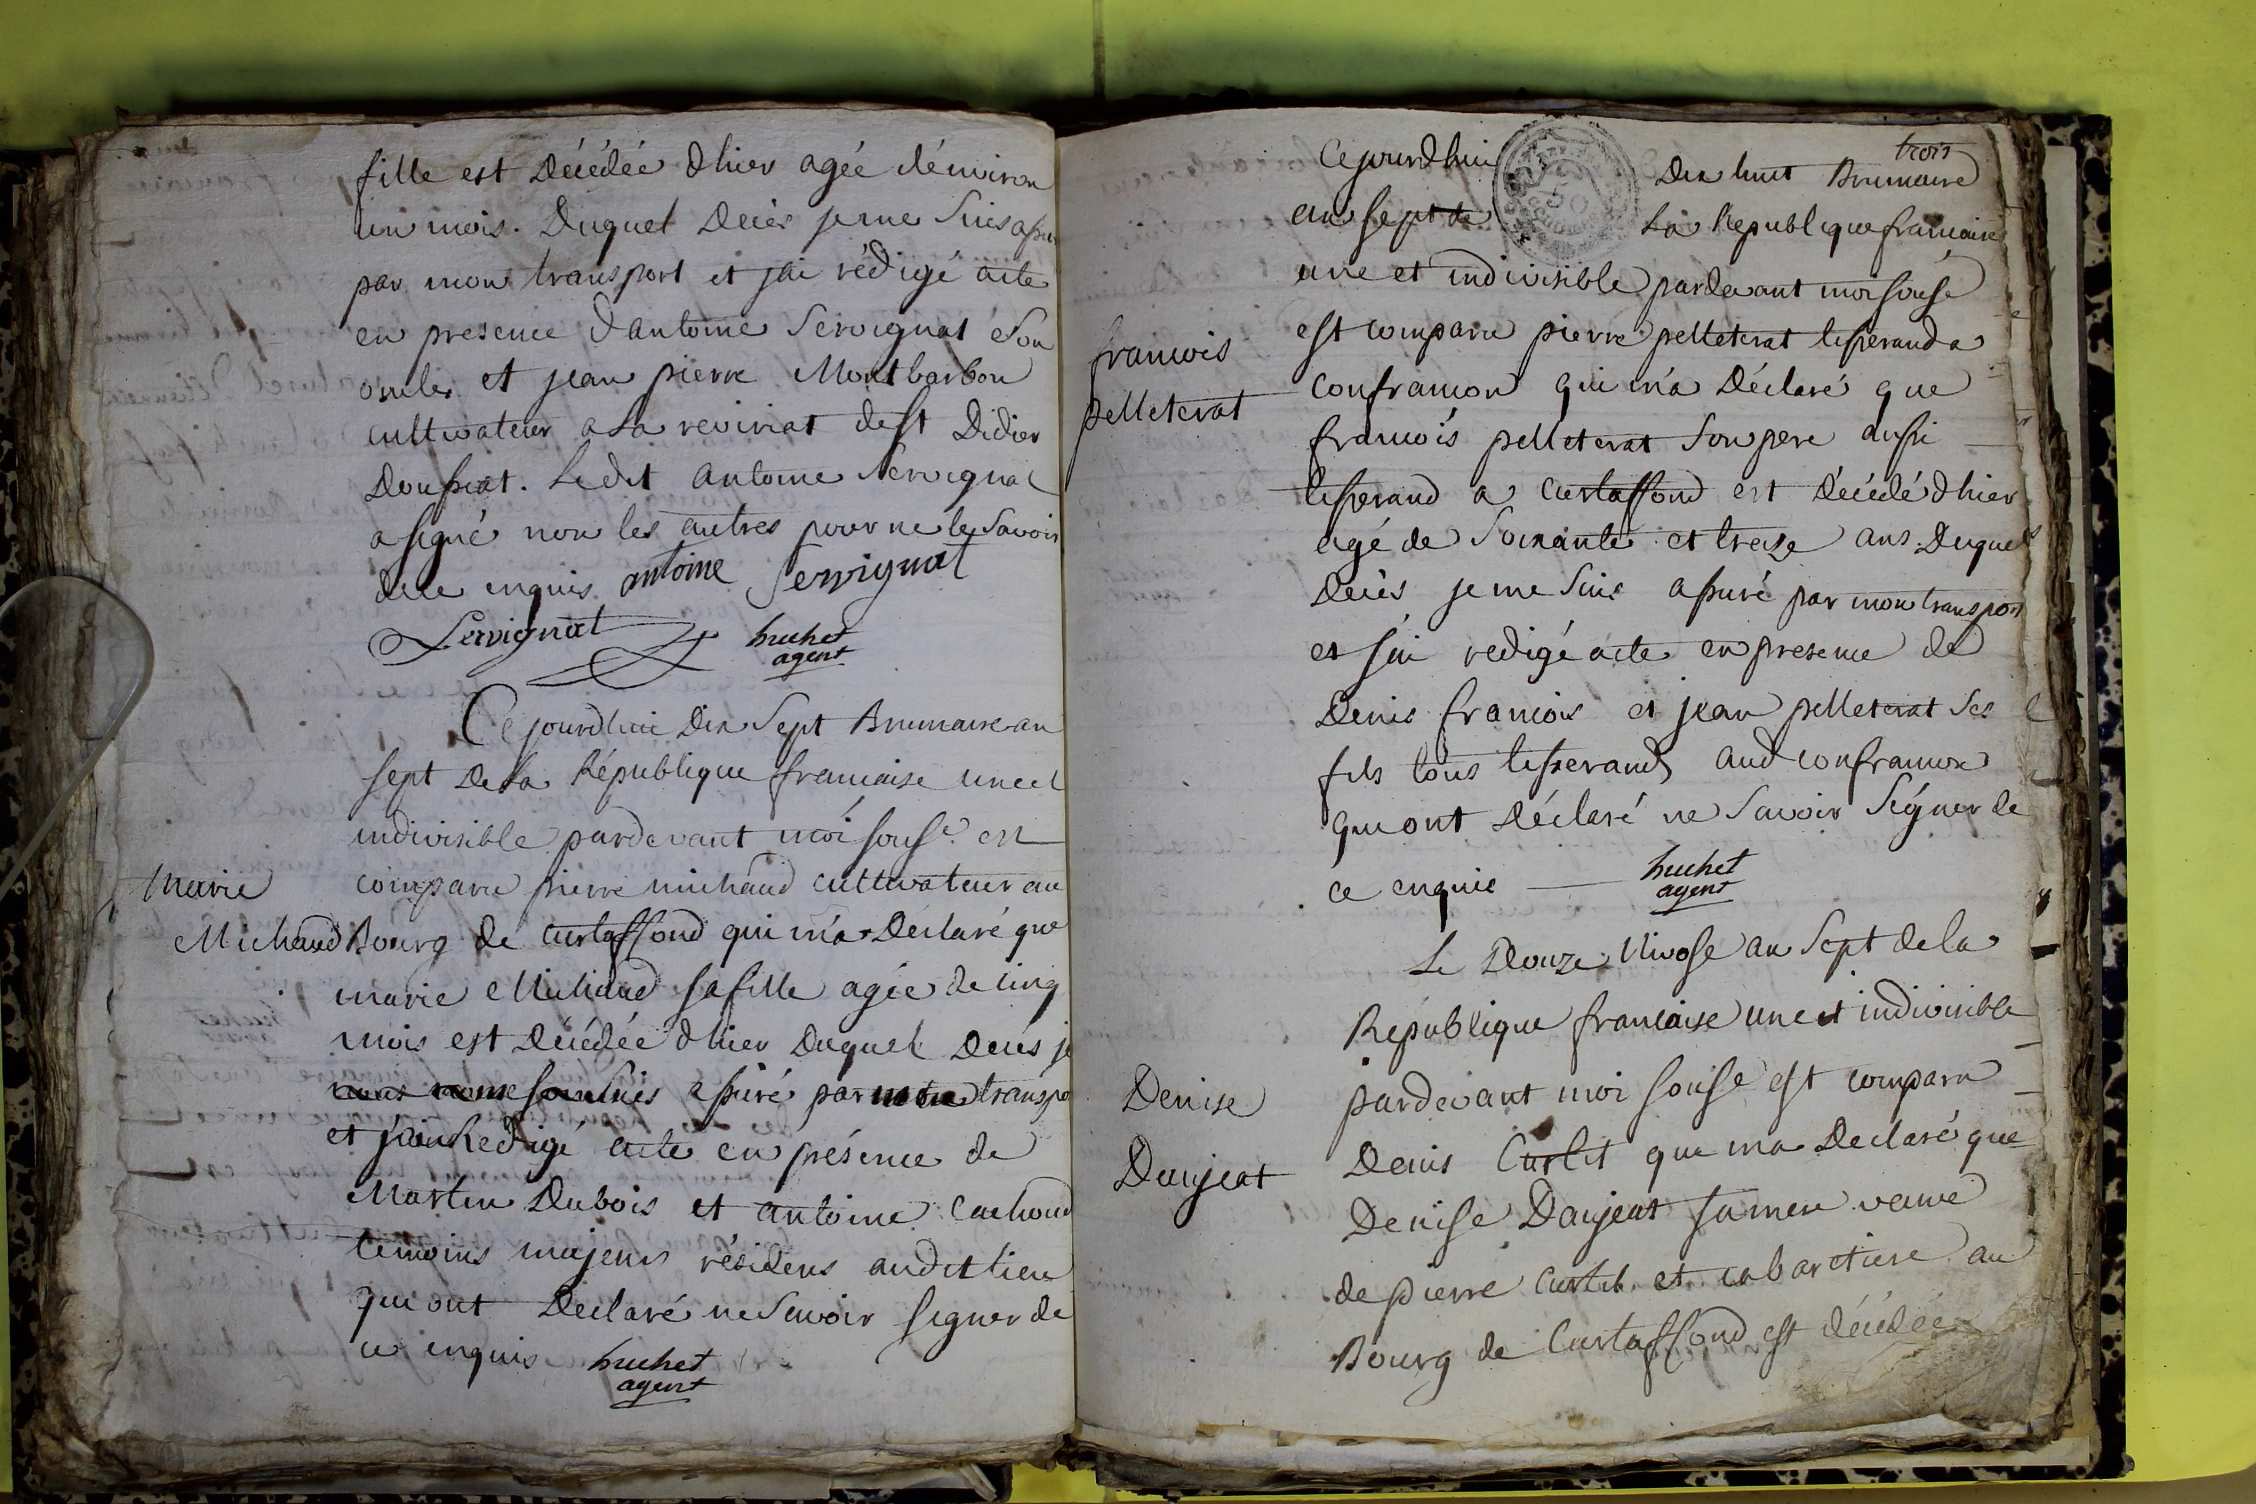 fille est Décédée d'hier agée d'environ
un mois. Duquel Decès je me Suis assuré
par mon transport et j'ai rédigé acte
en presence d'antoine Servignat Son
oncle et jean pierre Montbarbon
cultivateur a La reviriat de St Didier
Doussiat. Ledit antoine Servignat
a signé non les autres pour ne le Savoir
de ce enquis antoine Servignat
Servignat huchet
agent
Ce jourdhui Dix Sept Brumaire an
sept De La République francaise une et
indivisible pardevant moi souss.é est
comparu pierre michaud cultivateur au
Marie
Michaud
Bourg de Curtaffond qui m'a Déclaré que
marie Michaud sa fille agée de cinq
mois est Décédée d'hier Duquel Decès je
Suis assuré par transpo
et j'ai Redigé acte en présence de
Martin Dubois et antoine Cachoud
temoins majeurs résidens audit lieu
qui ont Declaré ne Savoir signer de
ce enquis huchet
agent
trois
Cejourdhui Dix huit Brumaire
an sept de La Republique francaise
une et indivisible pardevant moi sousé
est comparu pierre pelleterat tisserand a
francois
pelleterat
confrancon qui m'a Déclaré que
francois pelleterat Son pere aussi
tisserand a Curtaffond est Décédé d'hier
agé de Soixante et treize ans. Duquel
Decès je me Suis assuré par mon transport
et j'ai redigé acte en presence de
Denis francois et jean pelleterat Ses
fils tous tisserands aud confrancon
qui ont Déclaré ne Savoir Signer de
ce enquis huchet
agent
Le Douze Nivose an Sept de la
Republique francaise une et indivisible
Denise
Daujeat
pardevant moi sousse est comparu
Denis Curtit que ma Declaré que
Denise Daujeat sa mere veuve
de pierre Curtit et cabaretiere au
Bourg de Curtaffond est décédée